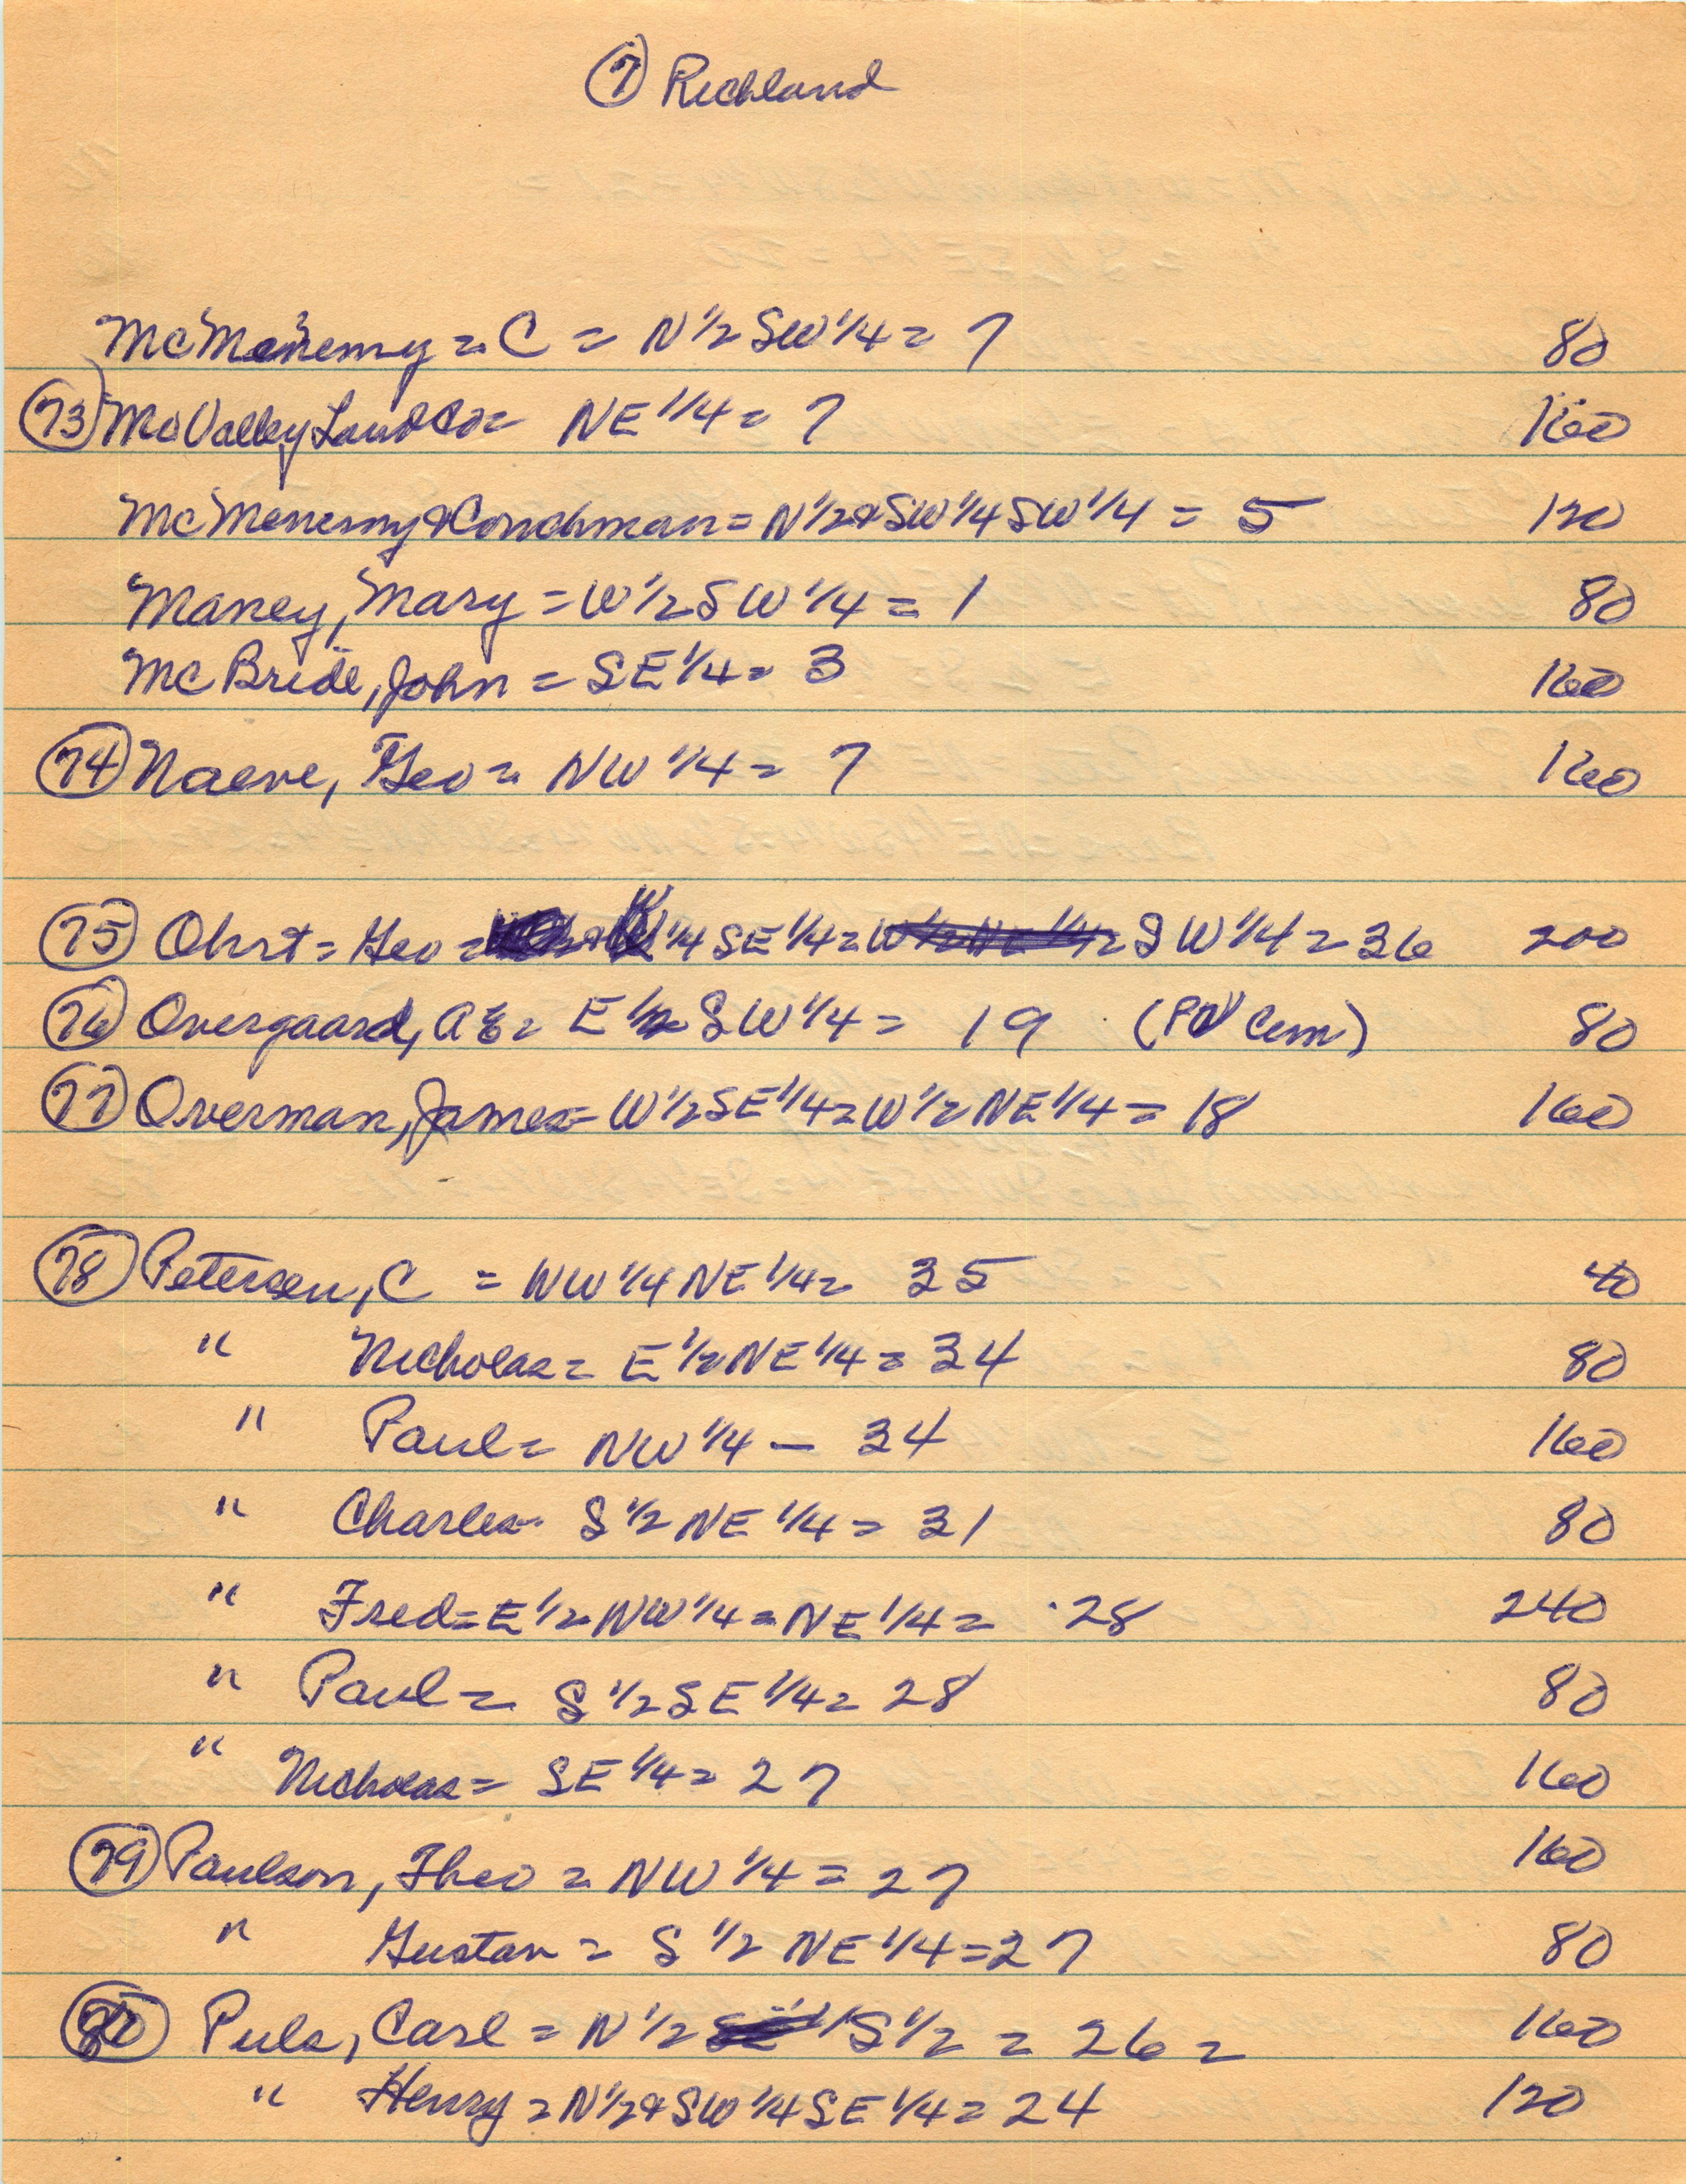 (7) Richland
McMenemy = C = N 1/2 SW 1/4 = 7 80
(73) Mo Valley Land Co = NE 1/4 = 7 160
McMenemy & Conchman = N 1/2 & SW 1/4 SW 1/4 = 5 120
Maney, Mary = W 1/2 SW 1/4 = 1 80
McBride, John = SE 1/4 = 3 160
(74) Naeve, Geo = NW 1/4 = 7 160
(75) Ohrt = Geo = 1/4 SE 1/4 = W 1/2 NE 1/4 = SW 1/4 = 36 200
(76) Overgaard, A = E 1/2 SW 1/4 = 19 (PV Cem) 80
(77) Overman, James = W 1/2 SE 1/4 = W 1/2 NE 1/4 = 18 160
(78) Petersen, C = NW 1/4 NE 1/4 = 35 40
" Nicholas = E 1/2 NE 1/4 = 34 80
" Paul = NW 1/4 — 34 160
" Charles = S 1/2 NE 1/4 = 31 80
" Fred = E 1/2 NW 1/4 = NE 1/4 = 28 240
" Paul = S 1/2 SE 1/4 = 28 80
" Nicholas = SE 1/4 = 27 160
(79) Paulson, Theo = NW 1/4 = 27 160
" Gustav = S 1/2 NE 1/4 = 27 80
(80) Puls, Carl = N 1/2 S 1/2 = 26 = 160
" Henry = N 1/2 & SW 1/4 SE 1/4 = 24 120